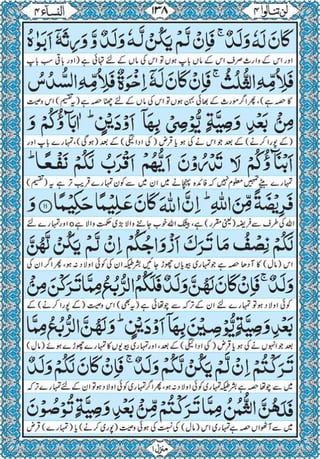 لن تنالوا ٤ ١٣٨ النساء ٤
كَانَ لَهٗ وَلَدٌ ۚ فَاِنْ لَّمْ یَكُنْ لَّهٗ وَلَدٌ وَّ وَرِثَهٗۤ اَبَوٰهُ
اور اس کے وارث صرف اس کے ماں باپ ہوں تو اس کی ماں کے لئے تہائی ہے (اور باقی سب باپ
فَلِاُمِّهِ الثُّلُثُ ۚ فَاِنْ كَانَ لَهٗۤ اِخْوَةٌ فَلِاُمِّهِ السُّدُسُ
کا حصہ ہے)، پھر اگر مورث کے بھائی بہن ہوں تو اس کی ماں کے لئے چھٹا حصہ ہے (یہ تقسیم) اس وصیت
مِنْۢ بَعْدِ وَصِیَّةٍ یُّوْصِیْ بِهَاۤ اَوْ دَیْنٍ ؕ اٰبَآؤُكُمْ وَ
کے (پورا کرنے) کے بعد جو اس نے کی ہو یا قرض (کی ادائیگی) کے بعد (ہو گی)، تمہارے باپ اور
اَبْنَآؤُكُمْ لَا تَدْرُوْنَ اَیُّهُمْ اَقْرَبُ لَكُمْ نَفْعًا ؕ
تمہارے بیٹے تمہیں معلوم نہیں کہ فائدہ پہنچانے میں ان میں سے کون تمہارے قریب تر ہے یہ (تقسیم)
فَرِیْضَةً مِّنَ اللّٰهِ ؕ اِنَّ اللّٰهَ كَانَ عَلِیْمًا حَكِیْمًا ۝۱۱ وَ
اللہ کی طرف سے فریضہ (یعنی مقرر) ہے، بیشک اللہ خوب جاننے والا بڑی حکمت والا ہے ۝ اور تمہارے لئے
لَكُمْ نِصْفُ مَا تَرَكَ اَزْوَاجُكُمْ اِنْ لَّمْ یَكُنْ لَّهُنَّ
اس (مال) کا آدھا حصہ ہے جو تمہاری بیویاں چھوڑ جائیں بشرطیکہ ان کی کوئی اولاد نہ ہو، پھر اگر ان کی
وَلَدٌ ۚ فَاِنْ كَانَ لَهُنَّ وَلَدٌ فَلَكُمُ الرُّبُعُ مِمَّا تَرَكْنَ مِنْۢ
کوئی اولاد ہو تو تمہارے لئے ان کے ترکہ سے چوتھائی ہے (یہ بھی) اس وصیت (کے پورا کرنے) کے
بَعْدِ وَصِیَّةٍ یُّوْصِیْنَ بِهَاۤ اَوْ دَیْنٍ ؕ وَ لَهُنَّ الرُّبُعُ مِمَّا
بعد جو انہوں نے کی ہو یا قرض (کی ادائیگی) کے بعد، اور تمہاری بیویوں کا تمہارے چھوڑے ہوئے (مال)
تَرَكْتُمْ اِنْ لَّمْ یَكُنْ لَّكُمْ وَلَدٌ ۚ فَاِنْ كَانَ لَكُمْ وَلَدٌ
میں سے چوتھا حصہ ہے بشرطیکہ تمہاری کوئی اولاد نہ ہو، پھر اگر تمہاری کوئی اولاد ہو تو ان کے لئے تمہارے ترکہ
فَلَهُنَّ الثُّمُنُ مِمَّا تَرَكْتُمْ مِّنْۢ بَعْدِ وَصِیَّةٍ تُوْصُوْنَ
میں سے آٹھواں حصہ ہے تمہاری اس (مال) کی نسبت کی ہوئی وصیت (پوری کرنے) یا (تمہارے) قرض
منزل ١